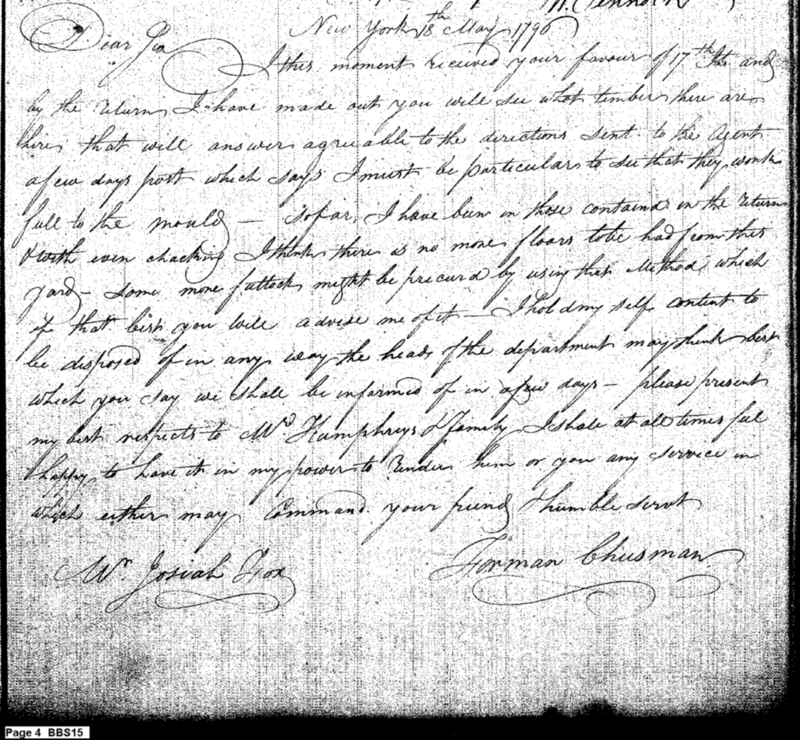 New York 18th May 1796
Dear Sir
I this moment received your favour of 17th Ins and
by the return I have made out you will see what timber there are
here that will answer agreeable to the directions sent to the Agent
a few days post which says I must be particular to see that they work
full to the mould — so far, I have been in those containd in the return
& with even chacking I think there is no more floors to be had from this
yard — some more futtocks might be precurd by using that Method which
if that best you will advise me of it — I hold my self content to
be disposed of in any way the heads of the department may think best
which you say we shall be informed of in a few days — please present
my best respects to Mr Humphreys & family I shall at all times feel
happy to have it in my power to render him or you any service in
which either may Command your friend & humble servt
Mr. Josiah Fox
Forman Cheesman
Page 4 BBS15